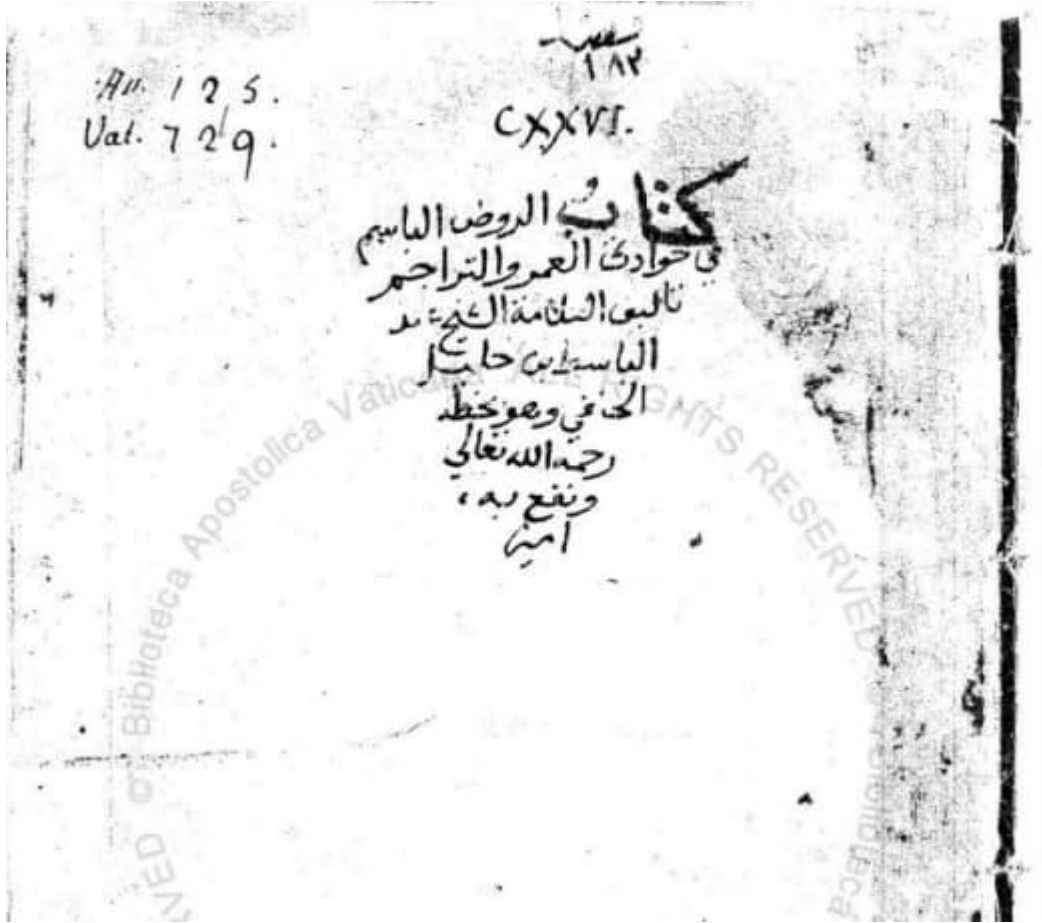 Ar. 125.
Vat. 729.
١٨٢
CXXVI.
كتاب الروض الباسم
في حوادث العمر والتراجم
تاليف العلامة الشيخ عبد
الباسط ابن خليل
الحنفي وهو بخطه
رحمه الله تعالي
ونفع به،
امين
© Biblioteca Apostolica Vaticana ALL RIGHTS RESERVED